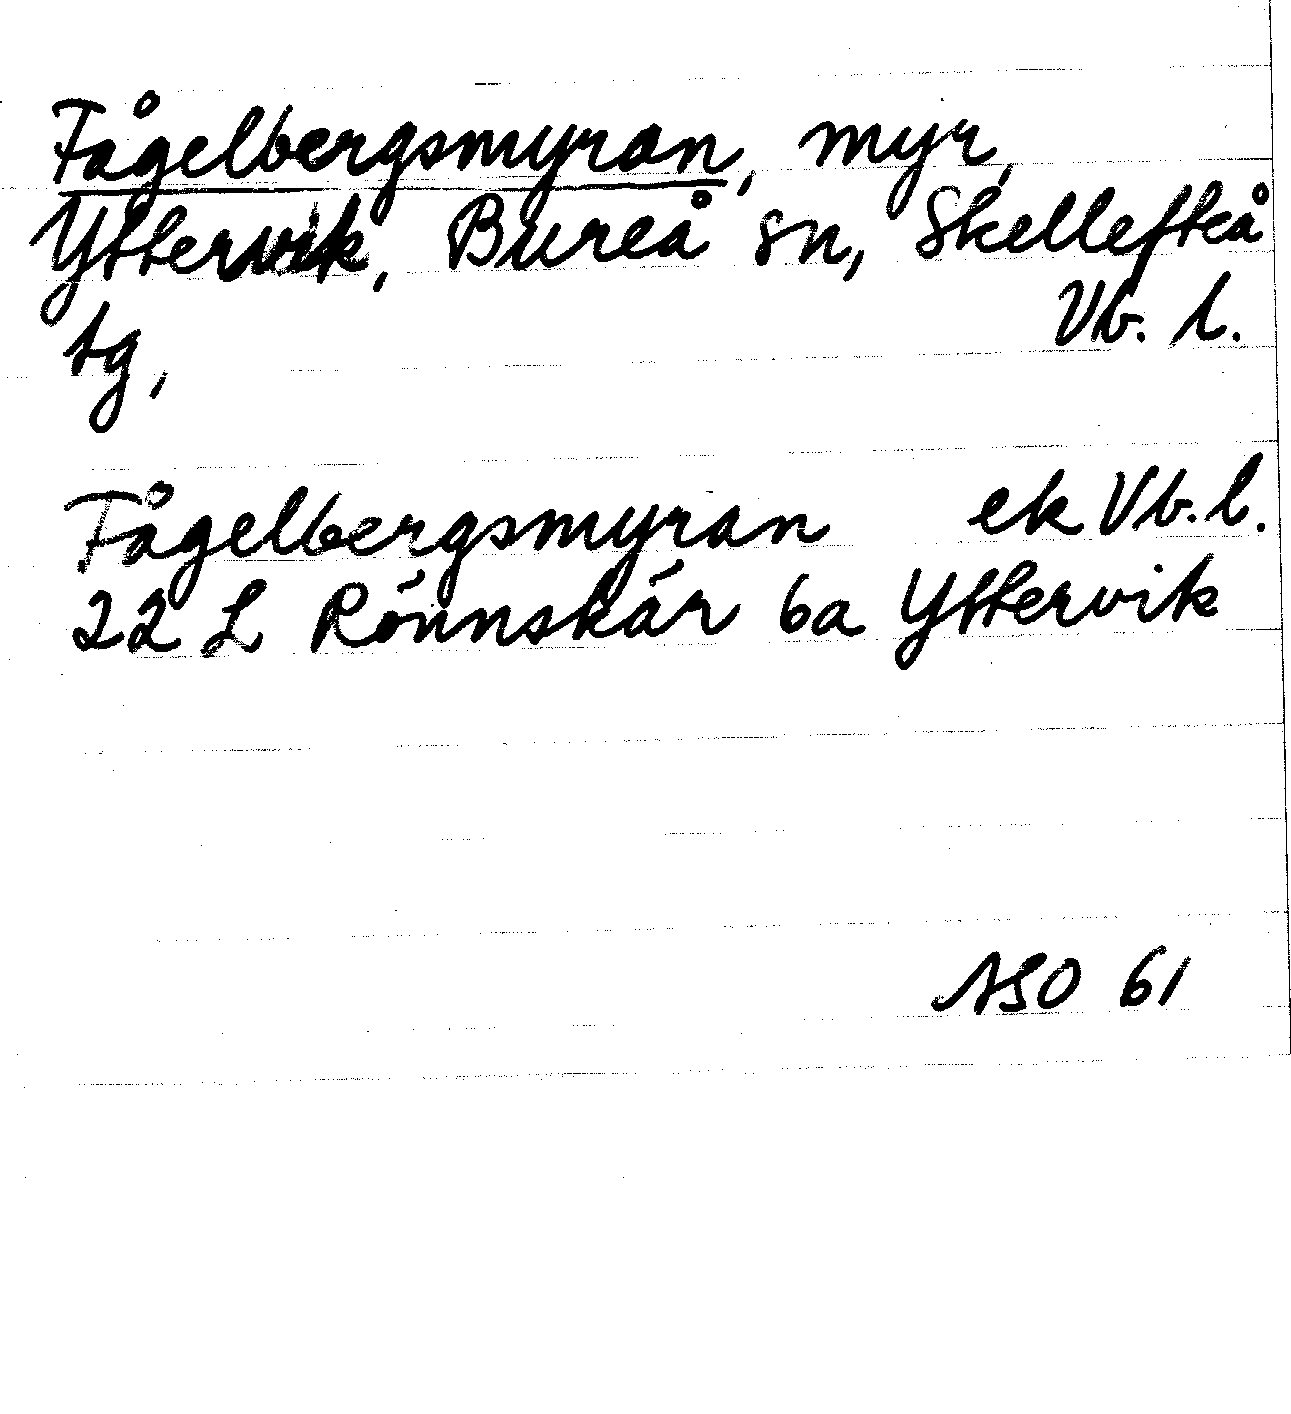 Fågelbergsmyran, myr,
Yttervik, Bureå sn, Skellefteå
tg, Vb. l.
Fågelbergsmyran ek Vb. l.
22 L Rönnskär 6a Yttervik
ASO 61